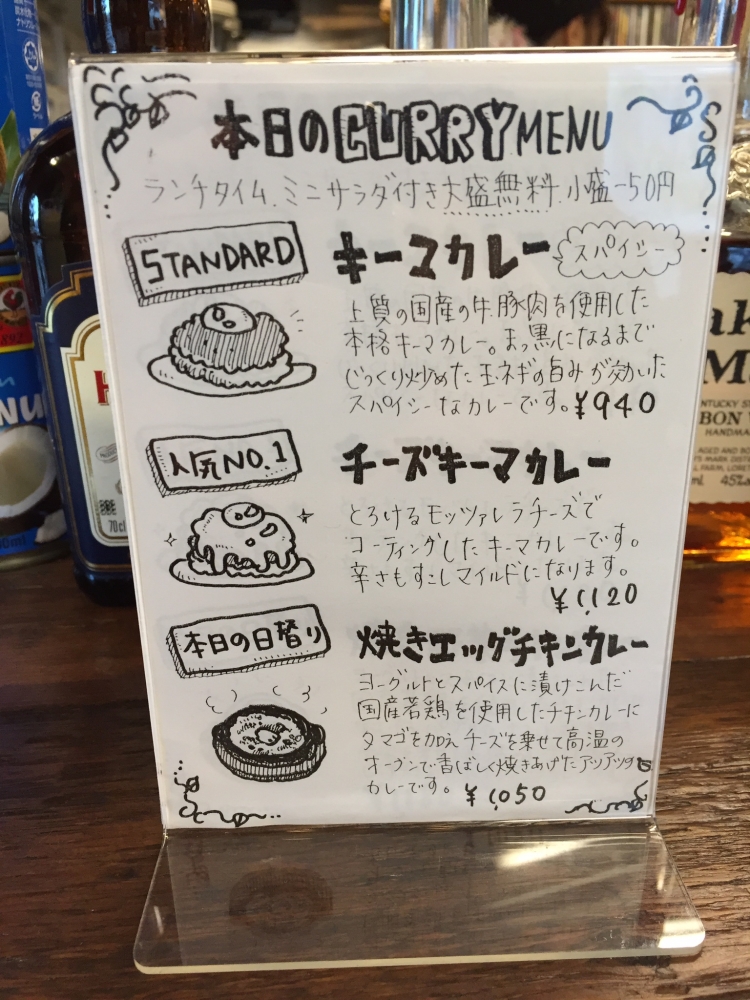 本日のCURRY MENU
ランチタイム、ミニサラダ付き大盛無料、小盛-50円
STANDARD
キーマカレー
スパイシー
上質の国産の牛、豚肉を使用した
本格キーマカレー。まっ黒になるまで
じっくり炒めた玉ネギの旨みが効いた
スパイシーなカレーです。¥940
人気NO.1
チーズキーマカレー
とろけるモッツァレラチーズで
コーティングしたキーマカレーです。
辛さもすこしマイルドになります。
¥1,120
本日の日替り
焼きエッグチキンカレー
ヨーグルトとスパイスに漬けこんだ
国産若鶏を使用したチキンカレーに
タマゴを加えチーズを乗せて高温の
オーブンで香ばしく焼きあげたアツアツの
カレーです。 ¥1,050
70cl
BON
HANDMA
45%